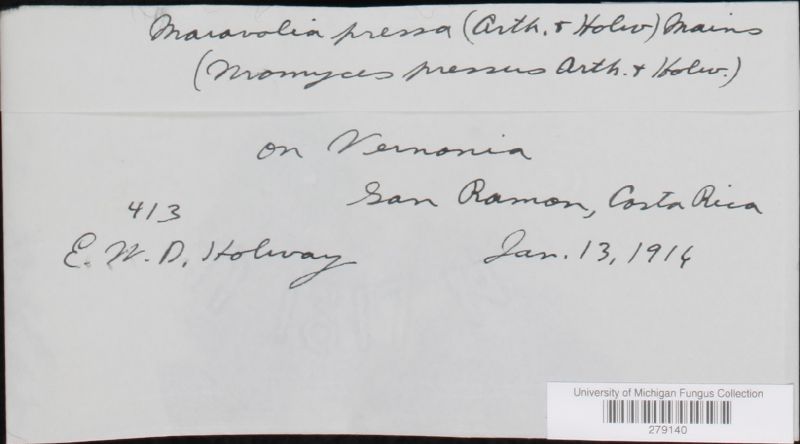 Maravalia pressa (Arth. & Holw) Mains
(Uromyces pressus Arth. & Holw.)
on Vernonia
San Ramon, Costa Rica
413
E. W. D. Holway Jan. 13, 1916
University of Michigan Fungus Collection
279140